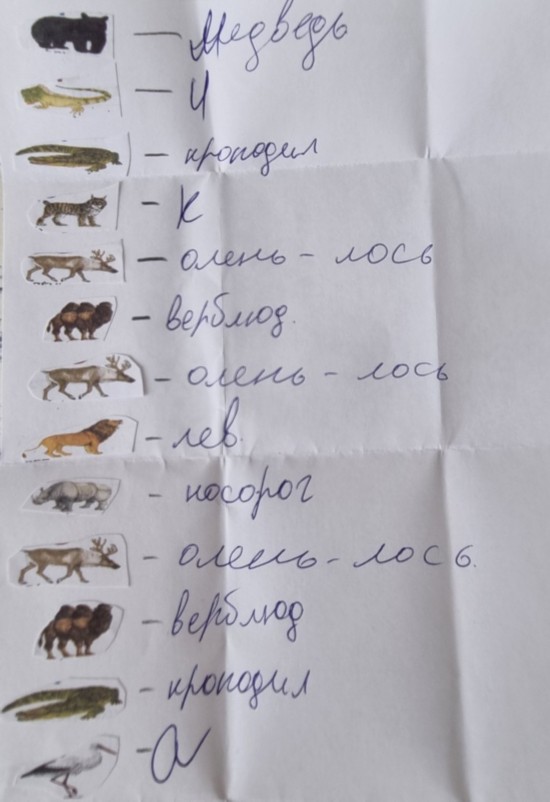 — Медведь
— И
— крокодил
- К
— олень - лось
- верблюд.
- олень - лось
- лев.
- носорог
- олень - лось.
- верблюд
- крокодил
- а